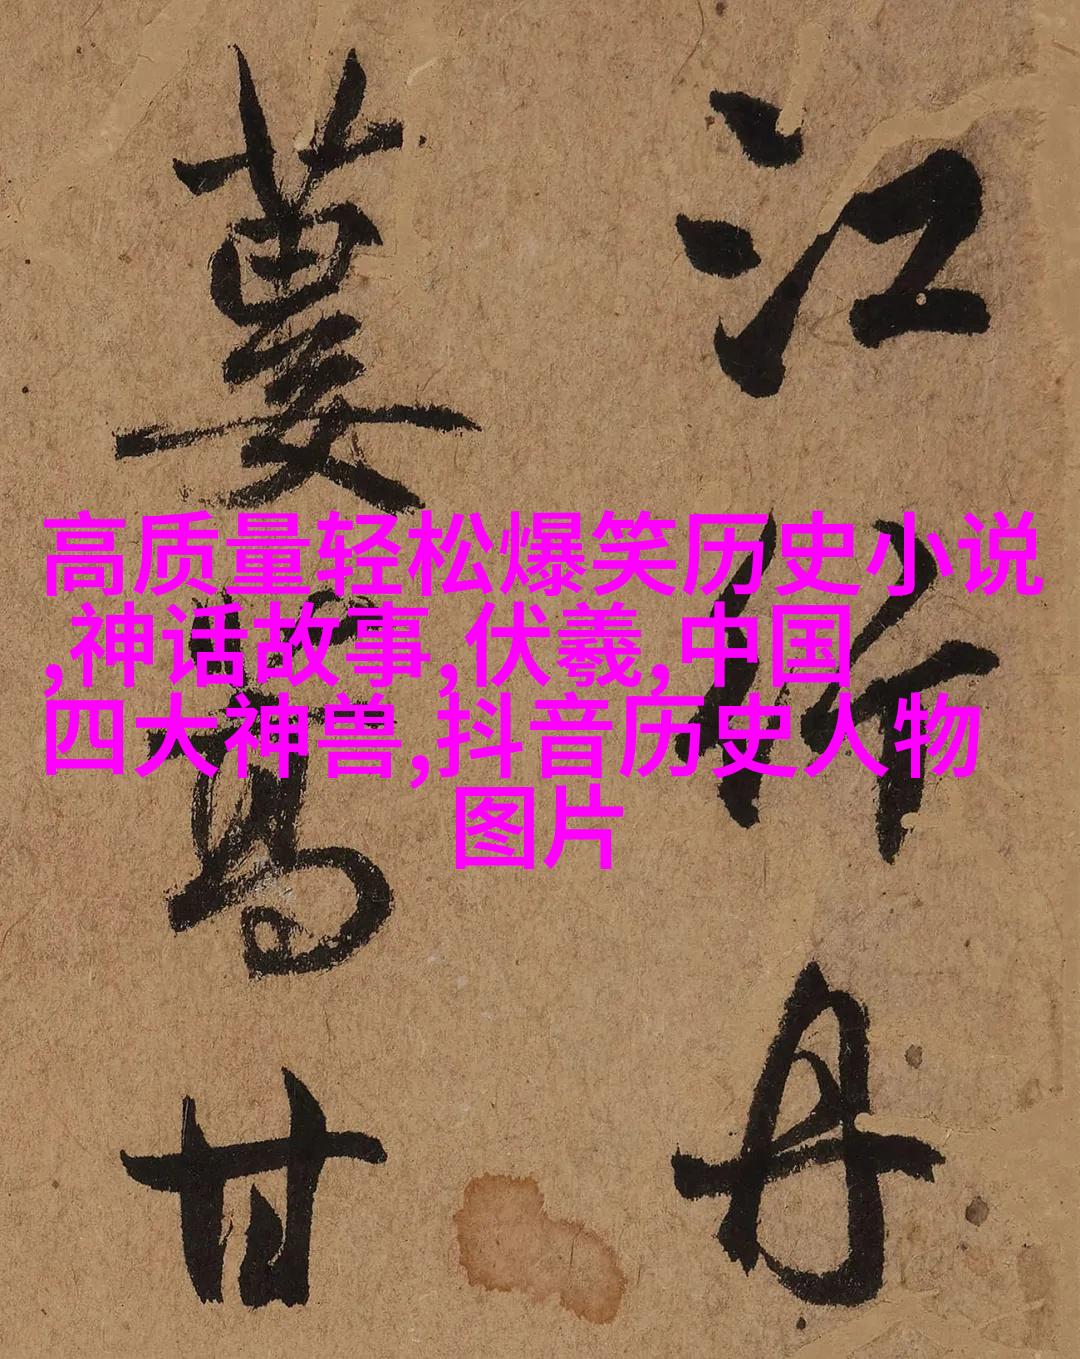 江行丹
蒌蒿甘
高质量轻松爆笑历史小说
,神话故事,伏羲,中国
四大神兽,抖音历史人物
图片